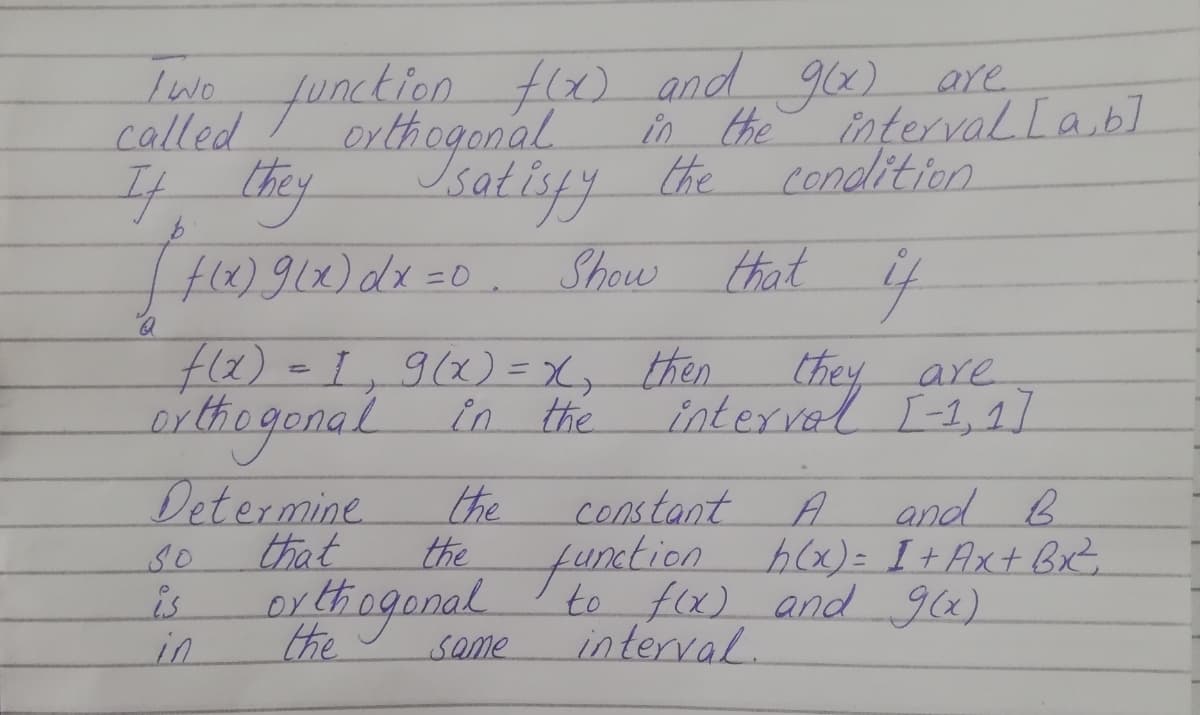 Two function f(x) and g(x) are
called orthogonal in the interval [a,b]
If they satisfy the condition
∫_a^b f(x) g(x) dx = 0. Show that if
f(x) = I, g(x) = x, then they are
orthogonal in the interval [-1, 1]
Determine the constant A and B
so that the function h(x) = I + Ax + Bx²,
is orthogonal to f(x) and g(x)
in the same interval.